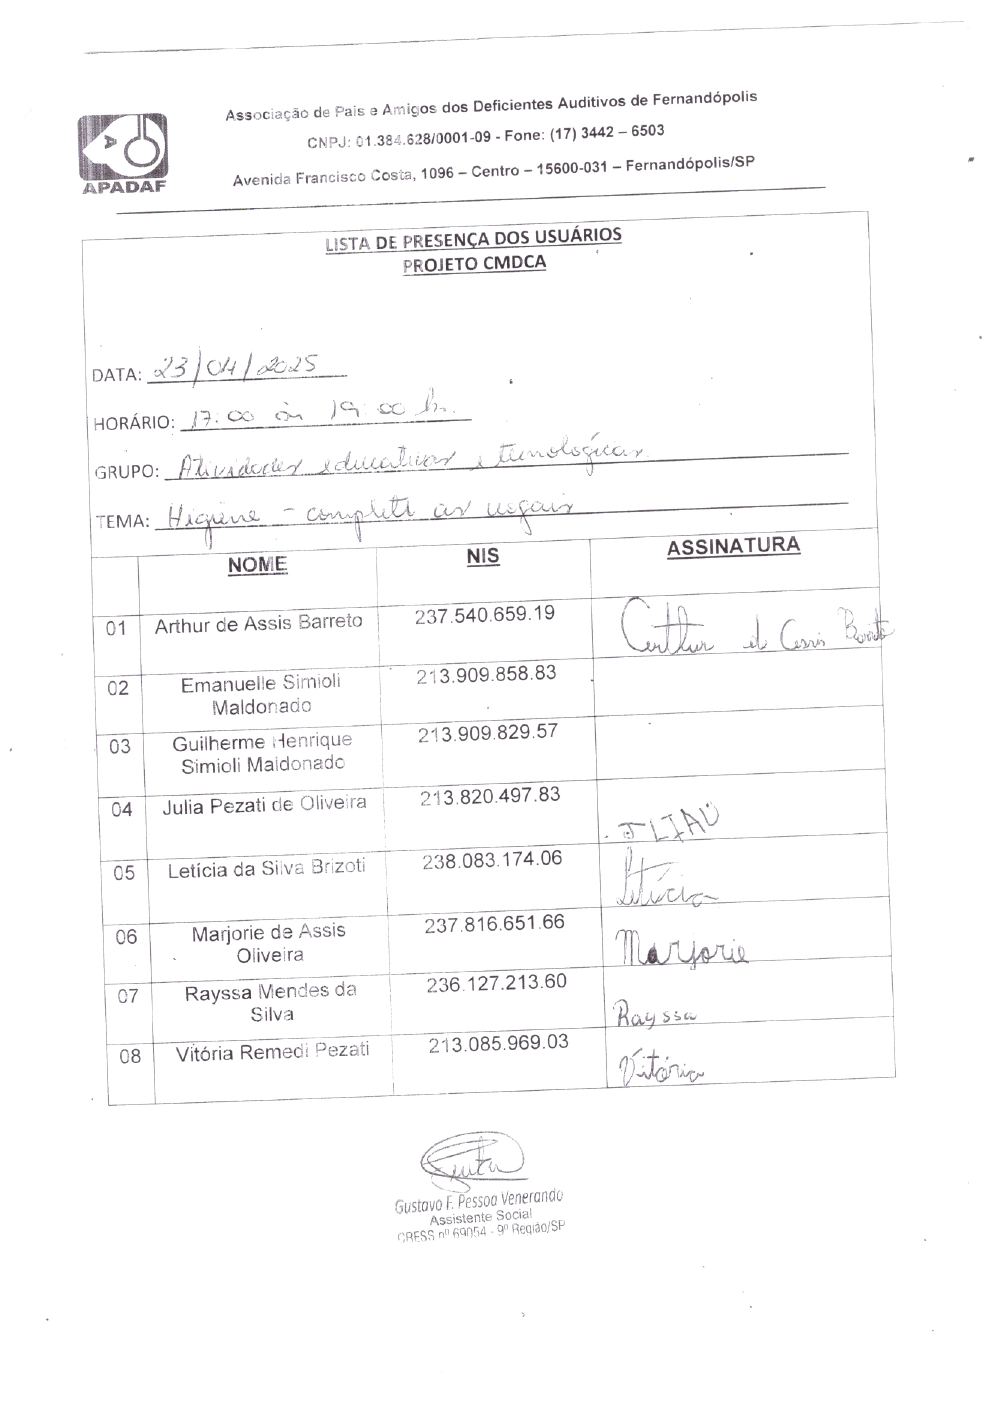 Associação de Pais e Amigos dos Deficientes Auditivos de Fernandópolis
CNPJ: 01.384.628/0001-09 - Fone: (17) 3442 – 6503
Avenida Francisco Costa, 1096 – Centro – 15600-031 – Fernandópolis/SP
APADAF
LISTA DE PRESENÇA DOS USUÁRIOS
PROJETO CMDCA
DATA: 23/04/2025
HORÁRIO: 17:00 às 19:00 h.
GRUPO: Atividades educativas e tecnológicas
TEMA: Higiene - complete as vogais
NOME NIS ASSINATURA
01 Arthur de Assis Barreto 237.540.659.19 Arthur de Assis Barreto
02 Emanuelle Simioli Maldonado 213.909.858.83
03 Guilherme Henrique Simioli Maldonado 213.909.829.57
04 Julia Pezati de Oliveira 213.820.497.83 JLIAU
05 Letícia da Silva Brizoti 238.083.174.06 Letícia
06 Marjorie de Assis Oliveira 237.816.651.66 Marjorie
07 Rayssa Mendes da Silva 236.127.213.60 Rayssa
08 Vitória Remedi Pezati 213.085.969.03 Vitória
Gustavo F. Pessoa Venerando
Assistente Social
CRESS nº 69054 - 9º Região/SP